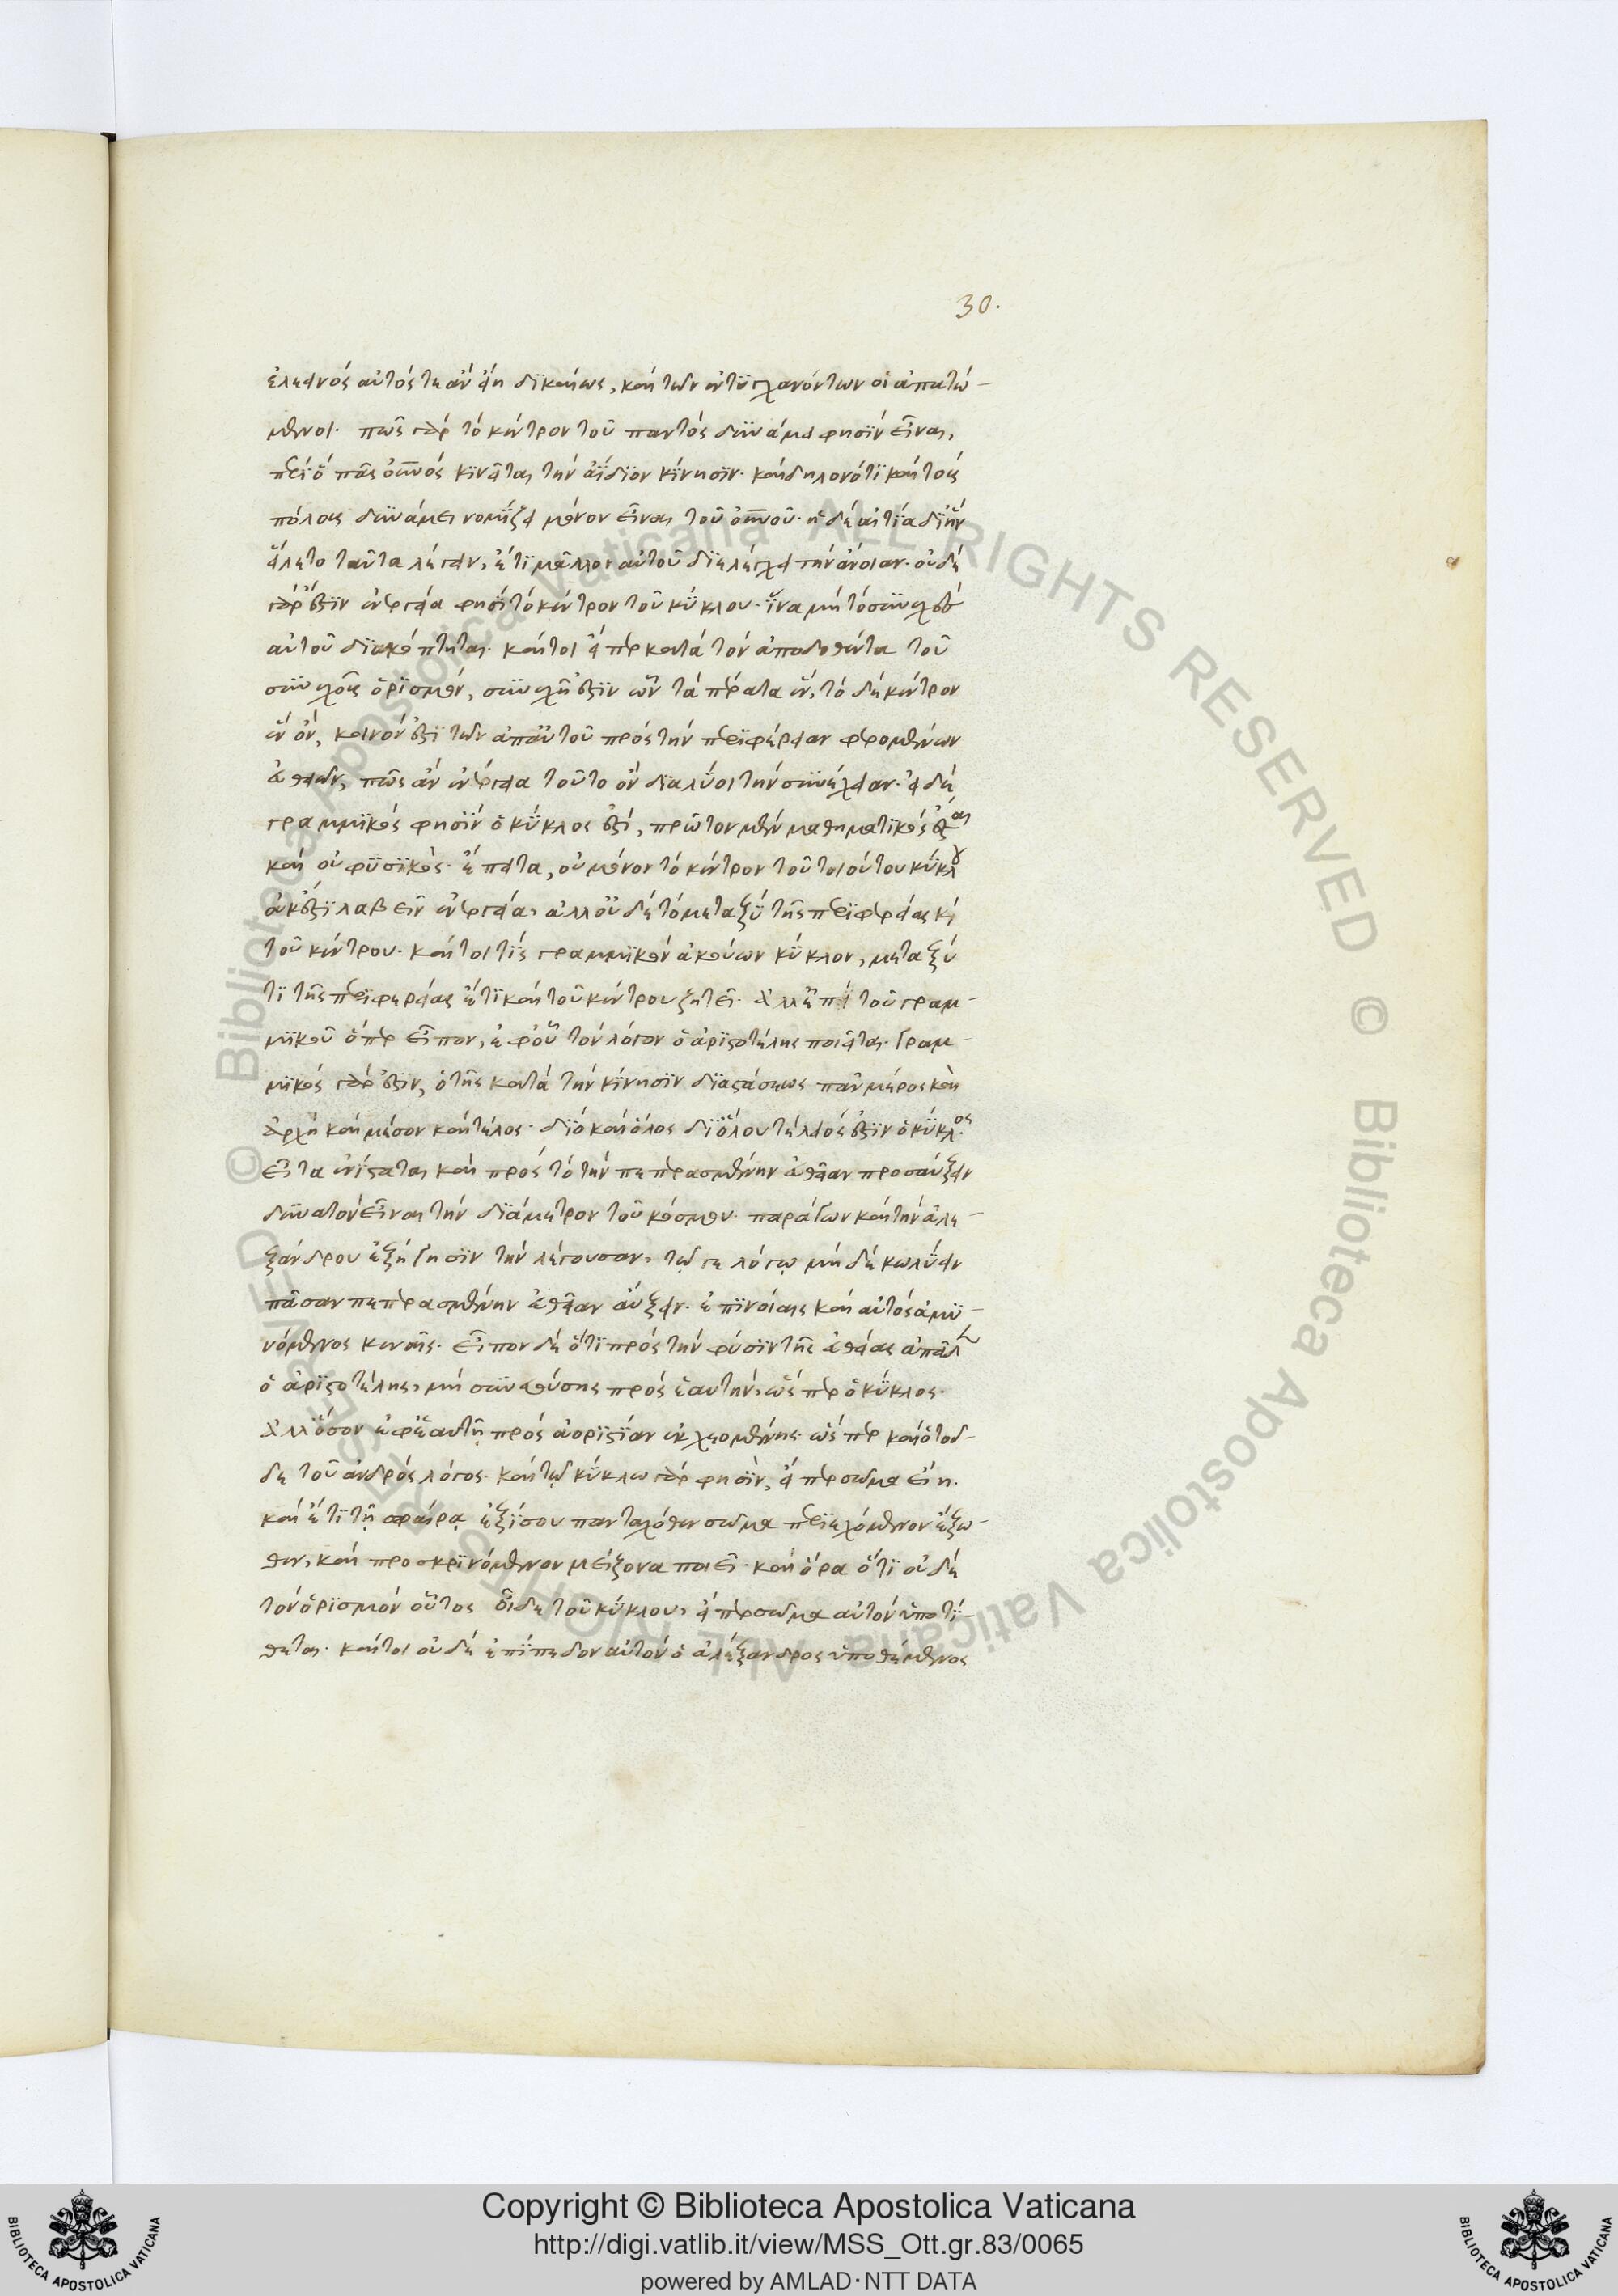 30.
ἐλεεινός αὐτός τε ἄν εἴη δικαίως, καί τῶν ἐντυγχανόντων οἱ ἀπατώ-
μενοι. πῶς γάρ τό κέντρον τοῦ παντός δυνάμει φησίν εἶναι,
περί ὅ πᾶς οὐνός κινεῖται τήν ἀΐδιον κίνησιν. καί δηλονότι καί τούς
πόλους δυνάμει νομίζει μόνον εἶναι τοῦ οὐνοῦ. ἡ δέ αἰτία δι ἥν
εἵλετο ταῦτα λέγειν, ἔτι μᾶλλον αὐτοῦ διελέγχει τήν ἄνοιαν. οὐδέ
γάρ ἐστιν ἐνεργείᾳ φησί τό κέντρον τοῦ κύκλου. ἵνα μή τό συνεχές
αὐτοῦ διακόπτηται. καίτοι εἴπερ κατά τόν ἀποδοθέντα τοῦ
συνεχοῦς ὁρισμόν, συνεχῆ ἐστιν ὧν τά πέρατα ἕν, τό δέ κέντρον
ἕν ὄν, κοινόν ἐστι τῶν ἀπ αὐτοῦ πρός τήν περιφέρειαν φερομένων
εὐθειῶν, πῶς ἄν ἐνεργείᾳ τοῦτο ὄν διαλύοι τήν συνέχειαν. εἰ δέ
γραμμικός φησίν ὁ κύκλος ἐστί, πρῶτον μέν μαθηματικός ἔσται
καί οὐ φυσικός. ἔπειτα, οὐ μόνον τό κέντρον τοῦ τοιούτου κύκλου
οὐκ ἔστι λαβεῖν ἐνεργείᾳ, ἀλλ οὐδέ τό μεταξύ τῆς περιφερείας κ
τοῦ κέντρου. καίτοι τίς γραμμικόν ἀκούων κύκλον, μεταξύ
τι τῆς περιφερείας ἔτι καί τοῦ κέντρου ζητεῖ. ἀλλ ἐπί τοῦ γραμ-
μικοῦ ὅπερ εἶπον, ἐφ οὗ τόν λόγον ὁ ἀριστοτέλης ποιεῖται. Γραμ-
μικός γάρ ἐστιν, ὁ τῆς κατά τήν κίνησιν διαστάσεως πᾶν μέρος καί
ἀρχή καί μέσον καί τέλος. διό καί ὅλος δι ὅλου τέλειός ἐστιν ὁ κύκλος.
εἶτα ἐνίσταται καί πρός τό τήν πεπερασμένην εὐθεῖαν προσαύξειν
δυνατόν εἶναι τήν διάμετρον τοῦ κόσμου. παράγων καί τήν ἀλε-
ξάνδρου ἐξήγησιν τήν λέγουσαν, τῷ γε λόγῳ μηδέ κωλύειν
πᾶσαν πεπερασμένην εὐθεῖαν αὔξειν. ἐπινοίαις καί αὐτός ἀμυ-
νόμενος κεναῖς. εἶπον δέ ὅτι πρός τήν φύσιν τῆς εὐθείας ἀπεῖδ
ὁ ἀριστοτέλης, μή συννευούσης πρός ἑαυτήν, ὥσπερ ὁ κύκλος.
ἀλλ ὅσον ἐφ ἑαυτῇ πρός ἀοριστίαν ἐκχεομένης. ὥσπερ καί ὁ τοῦ-
δε τοῦ ἀνδρός λόγος. καί τῷ κύκλω γάρ φησίν, εἴπερ σῶμα εἴη.
καί ἔτι τῇ σφαίρᾳ ἐξίσου πανταχόθεν σῶμα περιεχόμενον ἔξω-
θεν, καί προσκρινόμενον μείζονα ποιεῖ. καί ὅρα ὅτι οὐδέ
τόν ὁρισμόν οὗτος οἶδε τοῦ κύκλου, εἴπερ σῶμα αὐτόν ὑποτί-
θεται. καίτοι οὐδέ ἐπίπεδον αὐτόν ὁ ἀλέξανδρος ὑποθέμενος
Copyright © Biblioteca Apostolica Vaticana
http://digi.vatlib.it/view/MSS_Ott.gr.83/0065
powered by AMLAD·NTT DATA
BIBLIOTECA APOSTOLICA VATICANA
BIBLIOTECA APOSTOLICA VATICANA
© Biblioteca Apostolica Vaticana ALL RIGHTS RESERVED
© Biblioteca Apostolica Vaticana ALL RIGHTS RESERVED